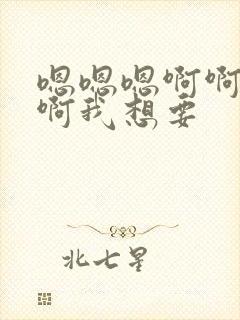 嗯嗯嗯啊啊
啊我想要
北七星